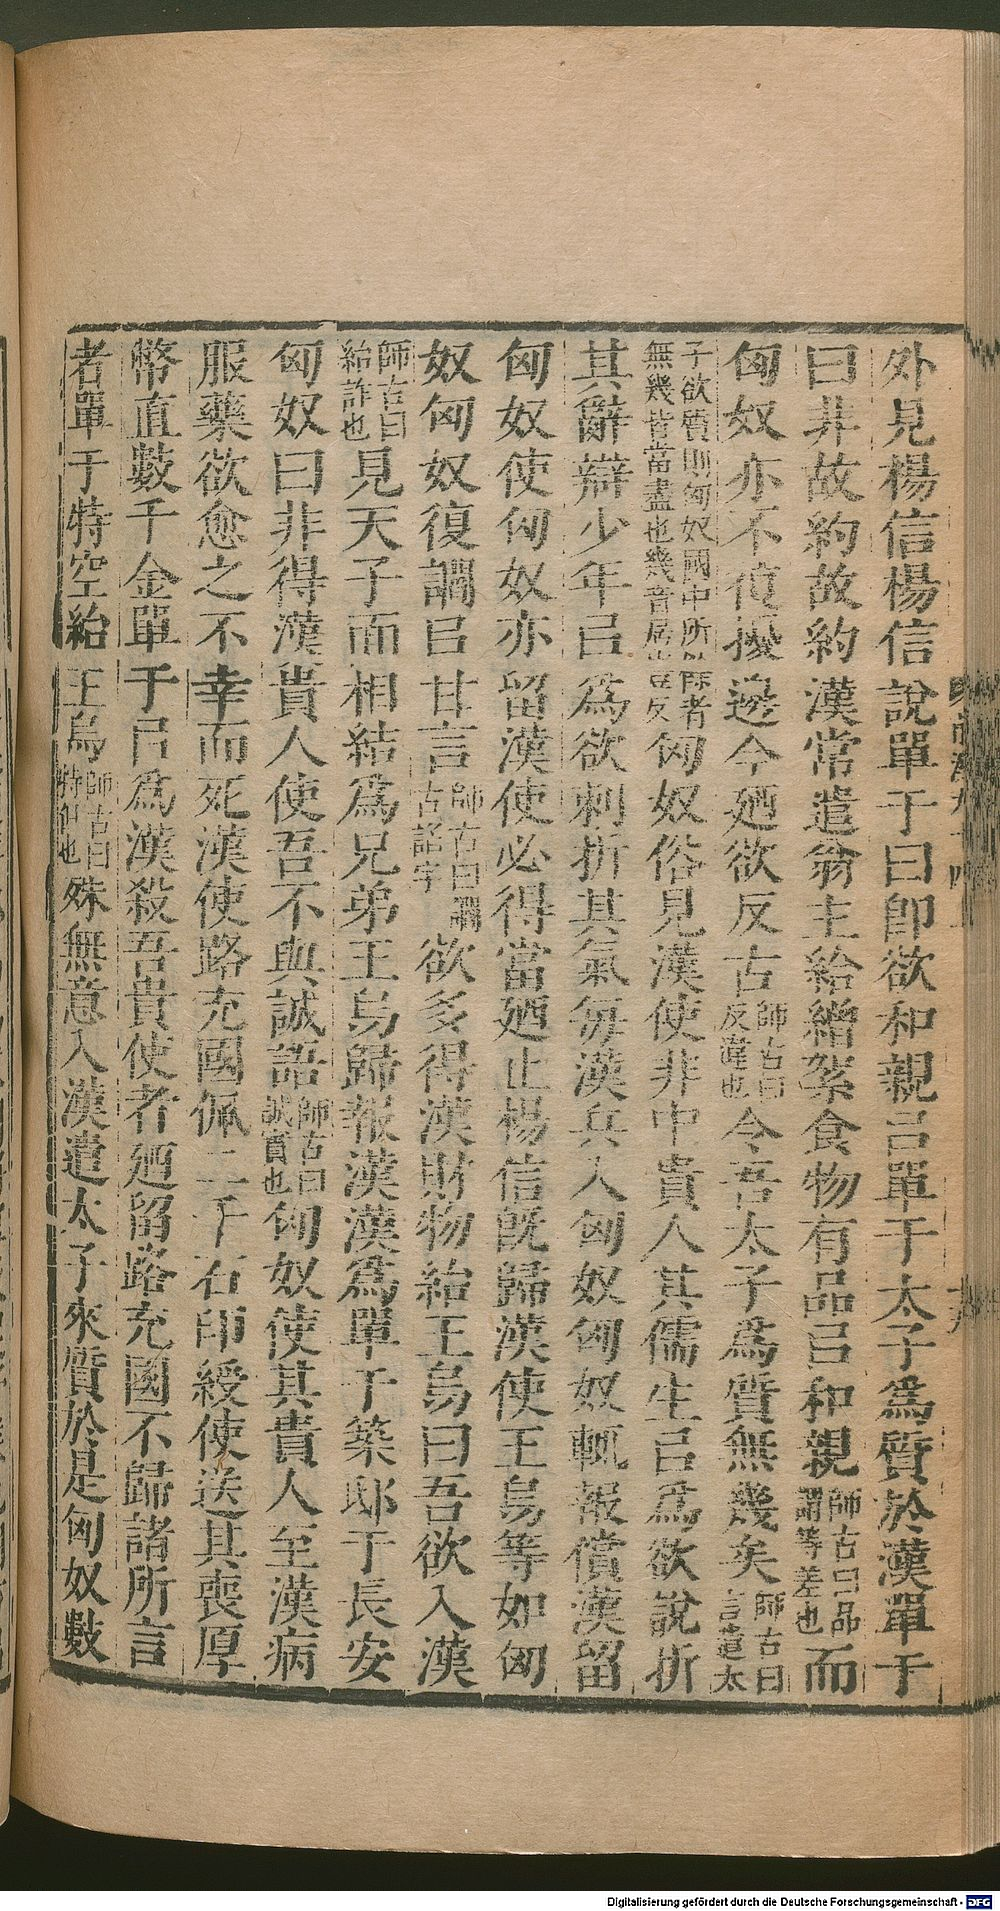 外見楊信楊信說單于曰卽欲和親㠯單于太子爲質於漢單于
曰非故約故約漢常遣翁主給繒絮食物有品㠯和親師古曰品謂等差也而
匈奴亦不復擾邊今廼欲反古師古曰反違也令吾太子爲質無幾矣師古曰言遣太
子欲質則匈奴國中所餘者無幾皆當盡也幾音居豈反匈奴俗見漢使非中貴人其儒生㠯爲欲說折
其辭辯少年㠯爲欲刺折其氣每漢兵入匈奴匈奴輒報償漢留
匈奴使匈奴亦留漢使必得當廼止楊信旣歸漢使王烏等如匈
奴匈奴復讇㠯甘言師古曰讇古諂字欲多得漢財物紿王烏曰吾欲入漢
師古曰紿詐也見天子面相結爲兄弟王烏歸報漢漢爲單于築邸于長安
匈奴曰非得漢貴人使吾不與誠語師古曰誠實也匈奴使其貴人至漢病
服藥欲愈之不幸而死漢使路充國佩二千石印綬使送其喪厚
幣直數千金單于㠯爲漢殺吾貴使者廼留路充國不歸諸所言
者單于特空紿王烏師古曰特但也殊無意入漢遣太子來質於是匈奴數
Digitalisierung gefördert durch die Deutsche Forschungsgemeinschaft - DFG